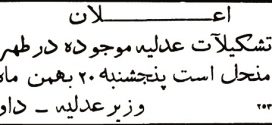 اعلان
تشکیلات عدلیه موجوده در طهر
منحل است پنجشنبه ۲۰ بهمن ماه
۲۵۳ وزیر عدلیه – داو